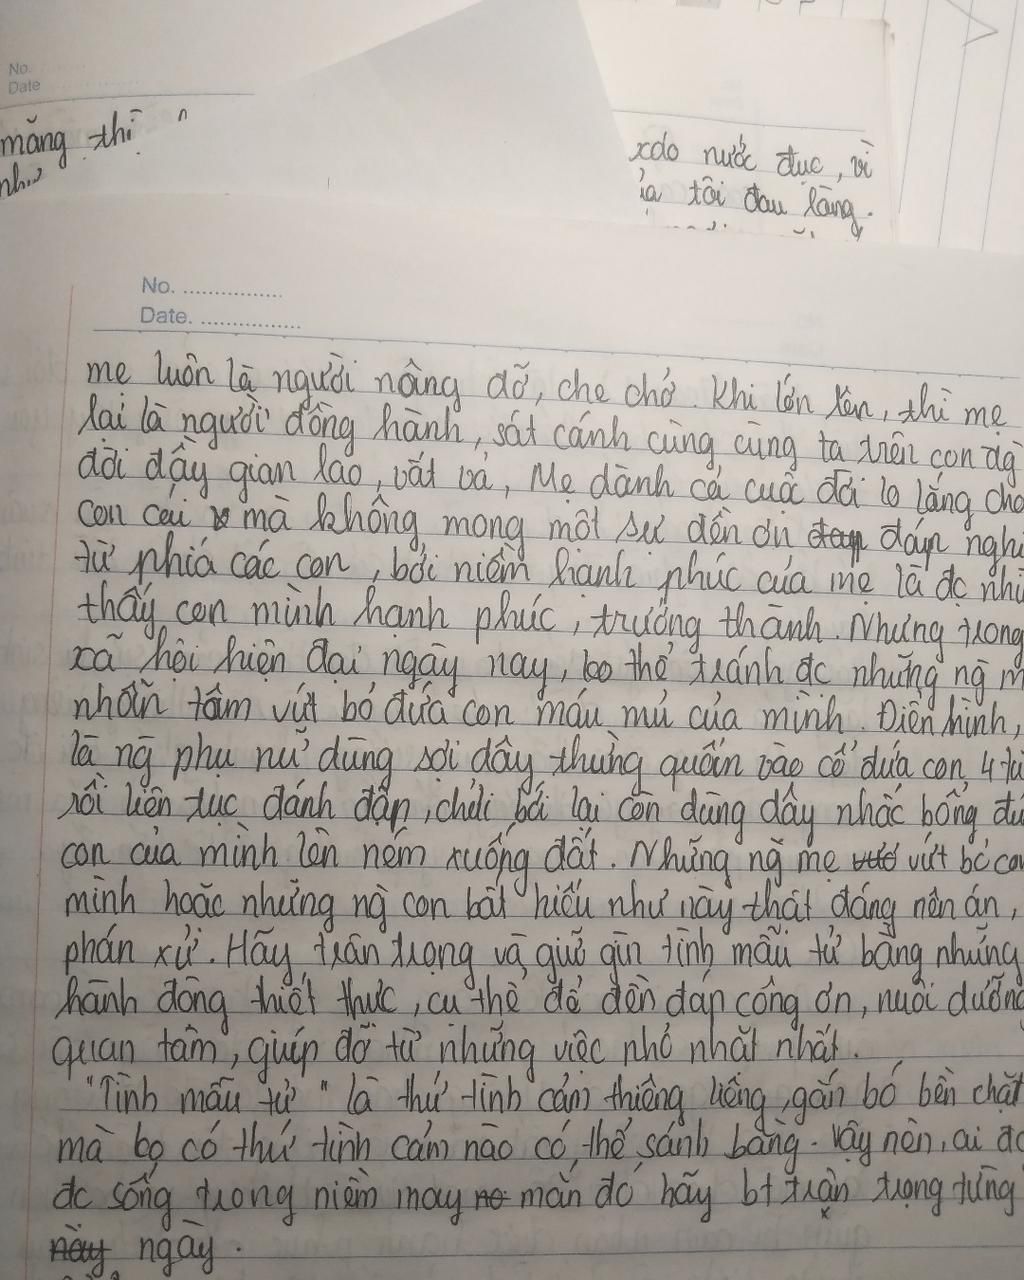 No.
Date
măng thì
xdo nước đục, vì
tôi đau lòng.
No. ................
Date. ................
mẹ luôn là người nâng dỡ, che chở. Khi lớn lên, thì mẹ
lại là người đồng hành, sát cánh cùng cùng ta trên con đg
đời đầy gian lao, vất vả, Mẹ dành cả cuộc đời lo lắng cho
con cái mà không mong một sự đền ơn đáp nghĩ
từ phiá các con, bởi niềm hạnh phúc của mẹ là đc nhì
thấy con mình hạnh phúc, trưởng thành. Nhưng trong
xã hội hiện đại ngày nay, ko thể tránh đc những ng
nhẫn tâm vứt bỏ đứa con máu mủ của mình. Điển hình,
là ng phụ nữ dùng sợi dây thừng quấn vào cổ đứa con 4 tu
rồi liên tục đánh đập, chửi bới lại còn dùng dây nhấc bổng đứ
con của mình lên ném xuống đất. Những ng mẹ vứt bỏ con
mình hoặc những ng con bất hiếu như này thật đáng nên án,
phán xử. Hãy trân trọng và giữ gìn tình mẫu tử bằng những
hành động thiết thực, cụ thể để đền đáp công ơn, nuôi dưỡng
quan tâm, giúp đỡ từ những việc nhỏ nhặt nhất.
"Tình mẫu tử" là thứ tình cảm thiêng liêng, gắn bó bền chặt
mà ko có thứ tình cảm nào có thể sánh bằng. Vậy nên, ai đc
đc sống trong niềm may mắn đó hãy bt trận trọng từng
ngày.